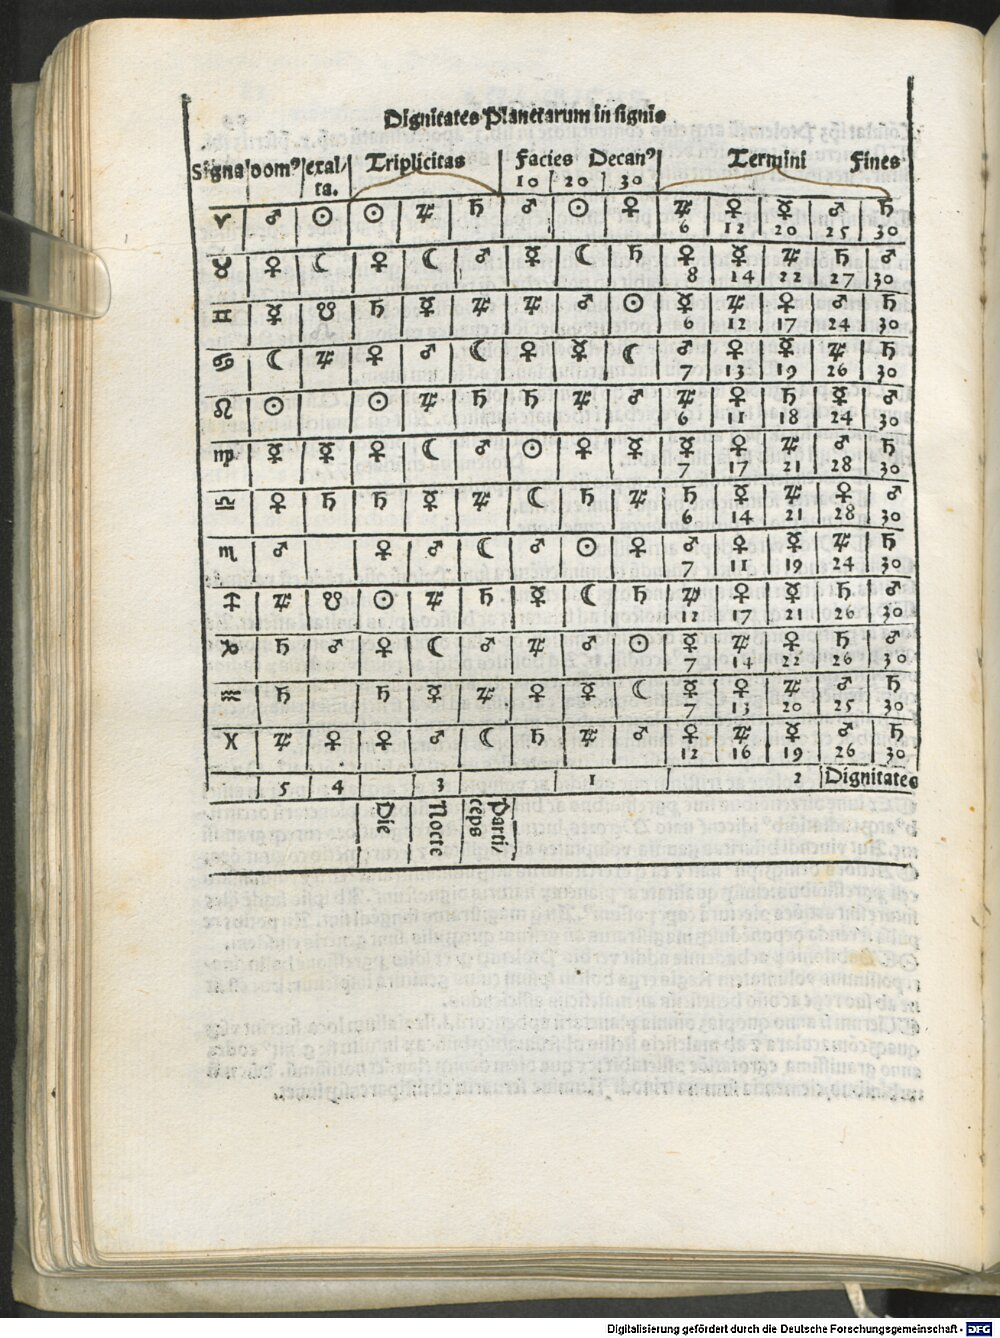 Dignitates Planetarum in signis
Signa domꝰ exal/ Triplicitas Facies Decanꝰ Termini Fines
ta. 10 20 30
♈ ♂ ☉ ☉ ♃ ♄ ♂ ☉ ♀ ♃ ♀ ☿ ♂ ♄
6 12 20 25 30
♉ ♀ ☾ ♀ ☾ ♂ ☿ ☾ ♄ ♀ ☿ ♃ ♄ ♂
8 14 22 27 30
♊ ☿ ☋ ♄ ☿ ♃ ♃ ♂ ☉ ☿ ♃ ♀ ♂ ♄
6 12 17 24 30
♋ ☾ ♃ ♀ ♂ ☾ ♀ ☿ ☾ ♂ ♀ ☿ ♃ ♄
7 13 19 26 30
♌ ☉ ☉ ♃ ♄ ♄ ♃ ♂ ♃ ♀ ♄ ☿ ♂
6 11 18 24 30
♍ ☿ ☿ ♀ ☾ ♂ ☉ ♀ ☿ ☿ ♀ ♃ ♂ ♄
7 17 21 28 30
♎ ♀ ♄ ♄ ☿ ♃ ☾ ♄ ♃ ♄ ☿ ♃ ♀ ♂
6 14 21 28 30
♏ ♂ ♀ ♂ ☾ ♂ ☉ ♀ ♂ ♀ ☿ ♃ ♄
7 11 19 24 30
♐ ♃ ☋ ☉ ♃ ♄ ☿ ☾ ♄ ♃ ♀ ☿ ♄ ♂
12 17 21 26 30
♑ ♄ ♂ ♀ ☾ ♂ ♃ ♂ ☉ ☿ ♃ ♀ ♄ ♂
7 14 22 26 30
♒ ♄ ♄ ☿ ♃ ♀ ☿ ☾ ☿ ♀ ♃ ♂ ♄
7 13 20 25 30
♓ ♃ ♀ ♀ ♂ ☾ ♄ ♃ ♂ ♀ ♃ ☿ ♂ ♄
12 16 19 26 30
5 4 3 1 2 Dignitates
Die
Nocte
Parti/
ceps
Digitalisierung gefördert durch die Deutsche Forschungsgemeinschaft - DFG